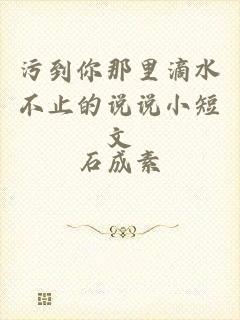 污到你那里滴水
不止的说说小短
文
石成素